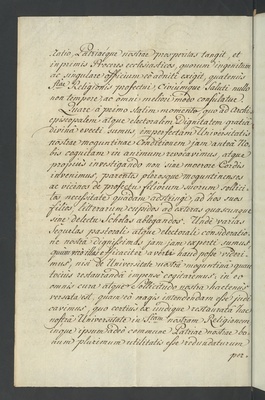 ratio, Patriaeque nostrae prosperitas tangit, et
inprimis Proceres ecclesiasticos, quorum ingenitum
ac singulare officium eo adniti exigit, quatenus
Religionis profectui, Civiumque Saluti nullo
non tempore, ac omni meliori modo consulatur.
Quare à primo statim momento, quo ad Archi-
episcopalem atque electoralem Dignitatem gratiâ
divinâ evecti sumus, imperfectam Universitatis
nostrae moguntinae Conditionem jam antea No-
bis cognitam in animum revocavimus, atque
propius investigando non sine moerore Cordis
invenimus, parentes plerosque moguntinenses
ac vicinos de profectu filiorum suorum sollici-
tos necessitate quadam adstringi, ad hos suos
filios, litterarum cupidos ad exteras quascunque
sine delectu Scholas ablegandos. Unde varias
Sequelas pastorali atque electorali consideratio-
ne nostra dignissimas jam jam experti sumus,
quas efficaciter averti haud posse vidi-
mus, nisi de Universitate nostra moguntina quan-
tocius restauranda impense cogitaremus, in eo
omnis cura atque Sollicitudo nostra hactenus
versata est, quam eo magis intendendam esse judi-
cavimus, quo certius ex indigne restaurata hac
nostra Universitate in nostram Religionem
inque ipsum adeo commune Patriae nostrae bo-
num plurimum utilitatis esse redundaturum
per-